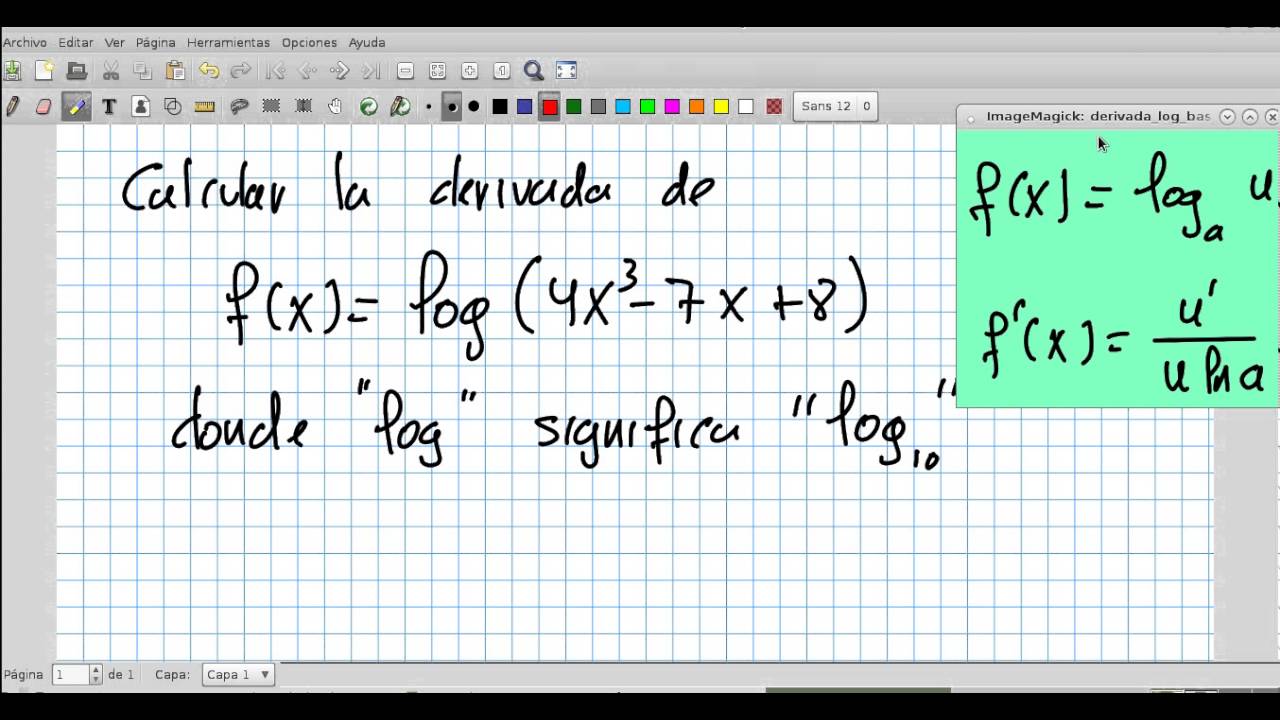 Archivo Editar Ver Página Herramientas Opciones Ayuda
Sans 12 0
ImageMagick: derivada_log_bas
Calcular la derivada de
f(x) = log (4x³ - 7x + 8)
donde "log" significa "log₁₀"
f(x) = logₐ u
f'(x) = u' / u ln a
Página 1 de 1 Capa: Capa 1